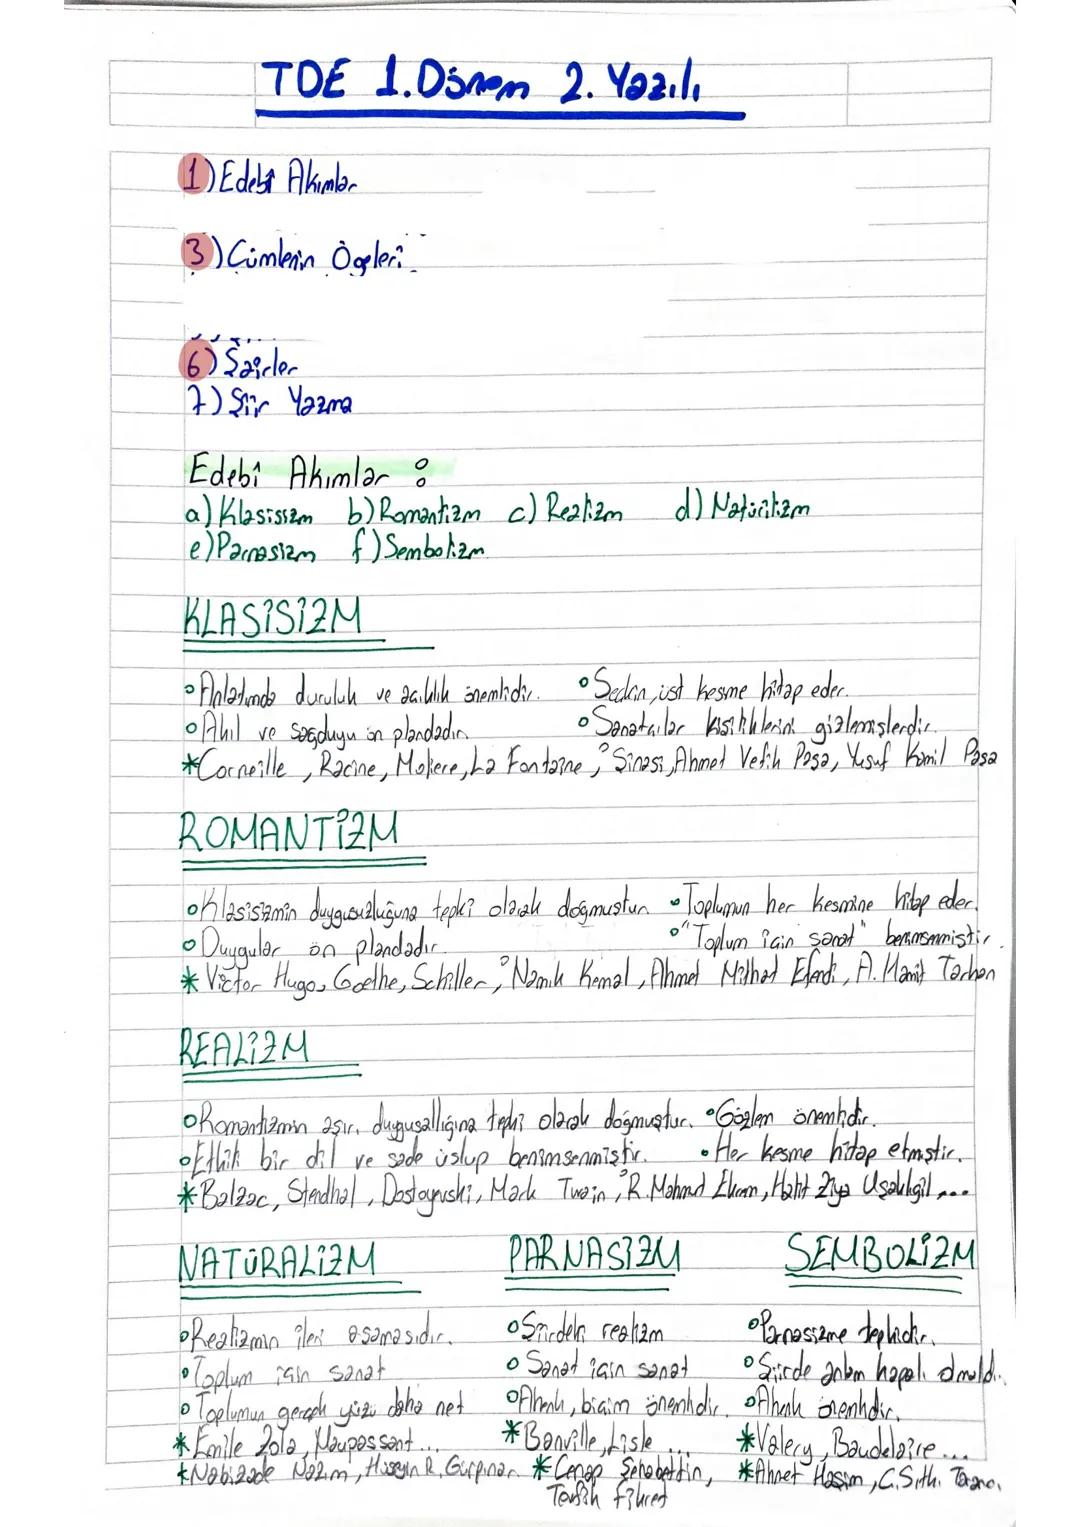 TDE 1.Dönem 2. Yazılı
1) Edebî Akımlar
3) Cümlenin Ögeleri
6) Şairler
7) Şiir Yazma
Edebî Akımlar :
a) Klasisizm b) Romantizm c) Realizm d) Natüralizm
e) Parnasizm f) Sembolizm
KLASİSİZM
Anlatımda duruluk ve açıklık önemlidir. Seçkin, üst kesime hitap eder.
Akıl ve sağduyu ön plandadır. Sanatçılar kişiliklerini gizlemişlerdir.
*Corneille, Racine, Moliere, La Fontaine, Şinasi, Ahmet Vefik Paşa, Yusuf Kamil Paşa
ROMANTİZM
Klasisizmin duygusuzluğuna tepki olarak doğmuştur. Toplumun her kesmine hitap eder.
Duygular ön plandadır. "Toplum için sanat" benimsenmiştir.
* Victor Hugo, Goethe, Schiller, Namık Kemal, Ahmet Mithat Efendi, A. Hamit Tarhan
REALİZM
Romantizmin aşırı duygusallığına tepki olarak doğmuştur. Gözlem önemlidir.
Etkili bir dil ve sade üslup benimsenmiştir. Her kesme hitap etmiştir.
*Balzac, Stendhal, Dostoyevski, Mark Twain, R. Mahmud Ekrem, Halit Ziya Uşaklıgil, ...
NATÜRALİZM PARNASİZM SEMBOLİZM
Realizmin ileri aşamasıdır. Şiirdeki realizm Parnasizme tepkidir.
Toplum için sanat Sanat için sanat Şiirde anlam kapalı olmalı.
Toplumun gerçek yüzü daha net Ahenk, biçim önemlidir. Ahenk önemlidir.
* Emile Zola, Maupassant... * Banville, Lisle ... *Valery, Baudelaire ...
*Nabizade Nazım, Hüseyin R. Gürpınar *Cenap Şehabettin, *Ahmet Haşim, C. Sıtkı Tarancı
Tevfik Fikret